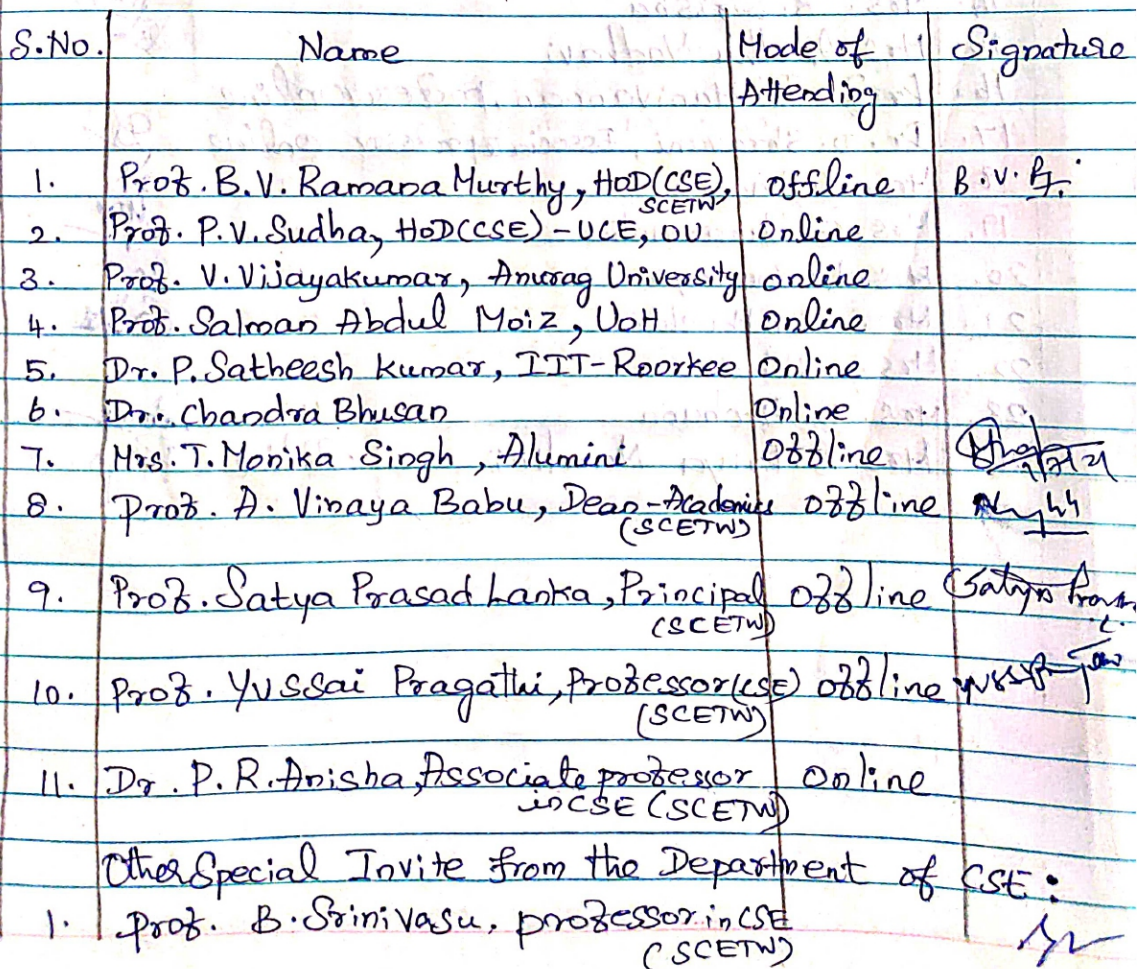 S.No. Name Mode of Signature
Attending
1. Prof. B.V. Ramana Murthy, HOD(CSE), offline B.V.R.
SCETW
2. Prof. P.V. Sudha, HOD(CSE) - UCE, OU Online
3. Prof. V. Vijayakumar, Anurag University online
4. Prof. Salman Abdul Moiz, UoH Online
5. Dr. P. Satheesh Kumar, IIT-Roorkee Online
6. Dr. Chandra Bhusan Online
7. Mrs. T. Monika Singh, Alumini Offline
8. Prof. A. Vinaya Babu, Dean-Academics offline
(SCETW)
9. Prof. Satya Prasad Lanka, Principal offline Satya
(SCETW)
10. Prof. Yvssai Pragathi, Professor(CSE) offline
(SCETW)
11. Dr. P.R. Anisha, Associate professor Online
in CSE (SCETW)
Other Special Invite from the Department of CSE:
1. Prof. B. Srinivasu, professor in CSE
(SCETW)